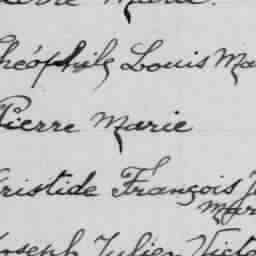 Marie.
Théophile Louis Ma
Pierre Marie
ristide François J
Mar
Joseph Julien Victo